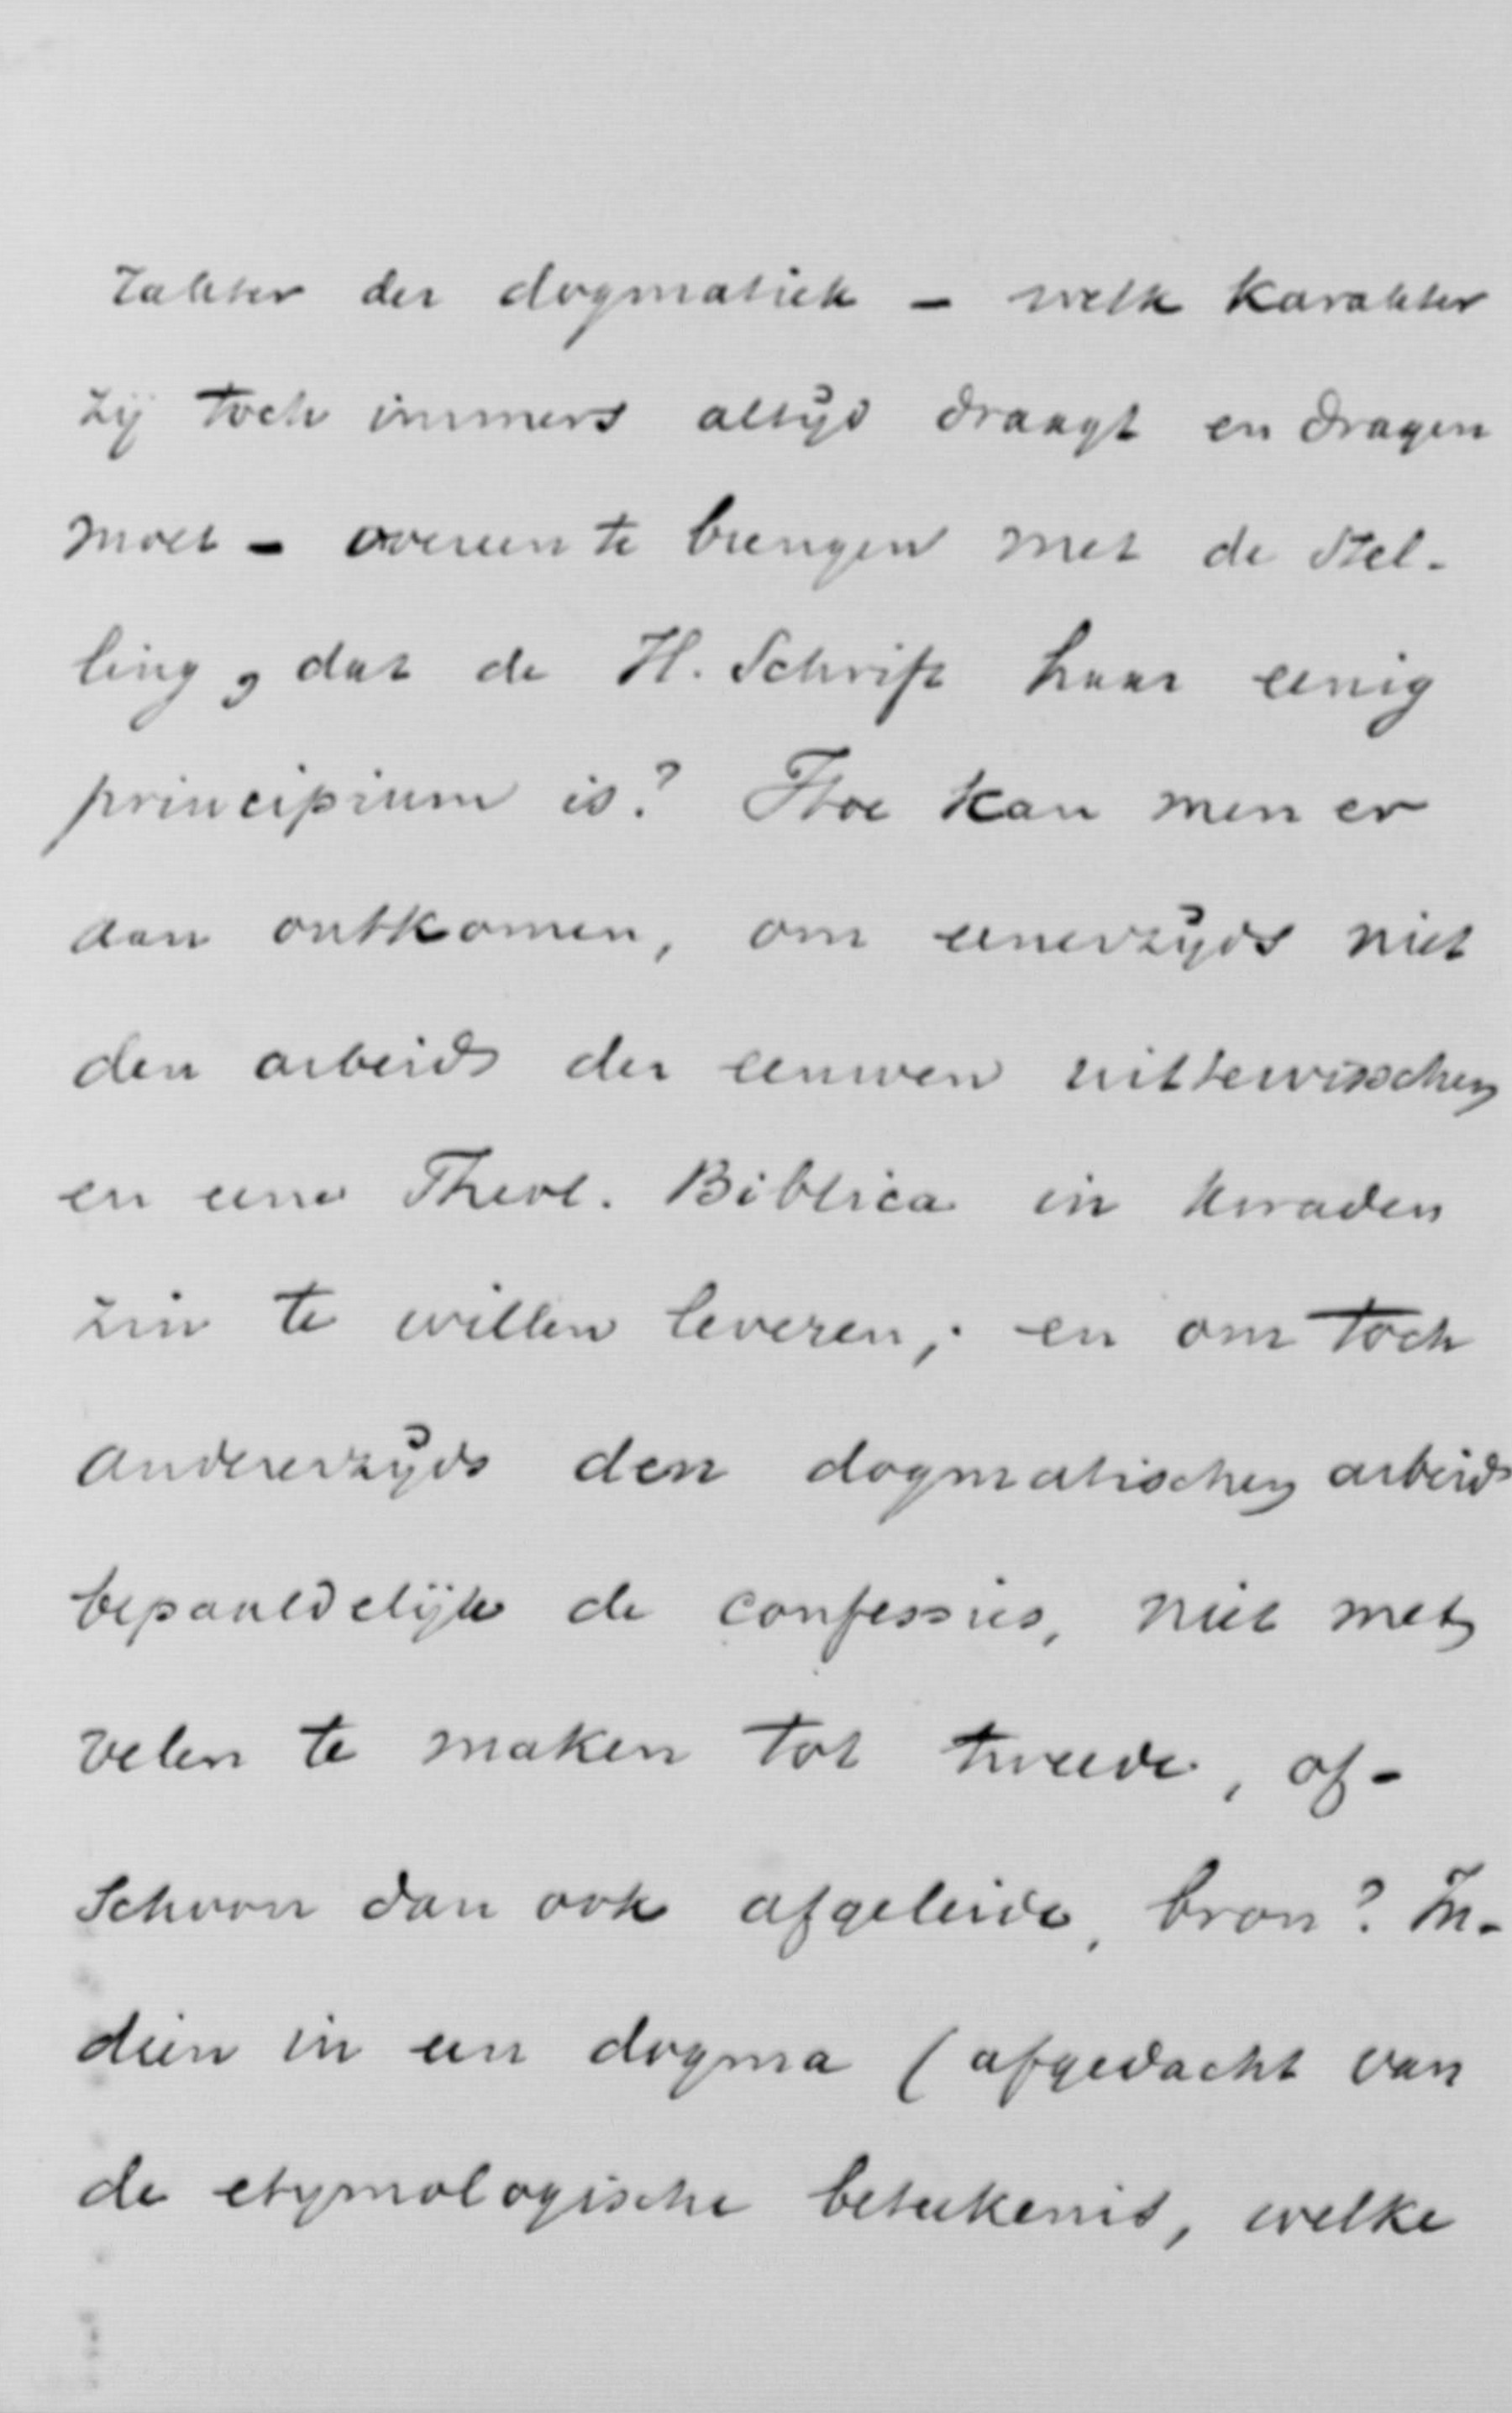 rakter der dogmatiek – welk karakter
zij toch immers altijd draagt en dragen
moet – overeen te brengen met de stel-
ling, dat de H. Schrift haar eenig
principium is? Hoe kan men er
aan ontkomen, om eenerzijds niet
den arbeid der eeuwen uittewisschen
en eene Theol. Biblica in kwaden
zin te willen leveren; en om toch
andererzijds den dogmatischen arbeid
bepaaldelijk de confessies, niet met
velen te maken tot tweede, of-
schoon dan ook afgeleide, bron? In-
dien in een dogma (afgedacht van
de etymologische beteekenis, welke